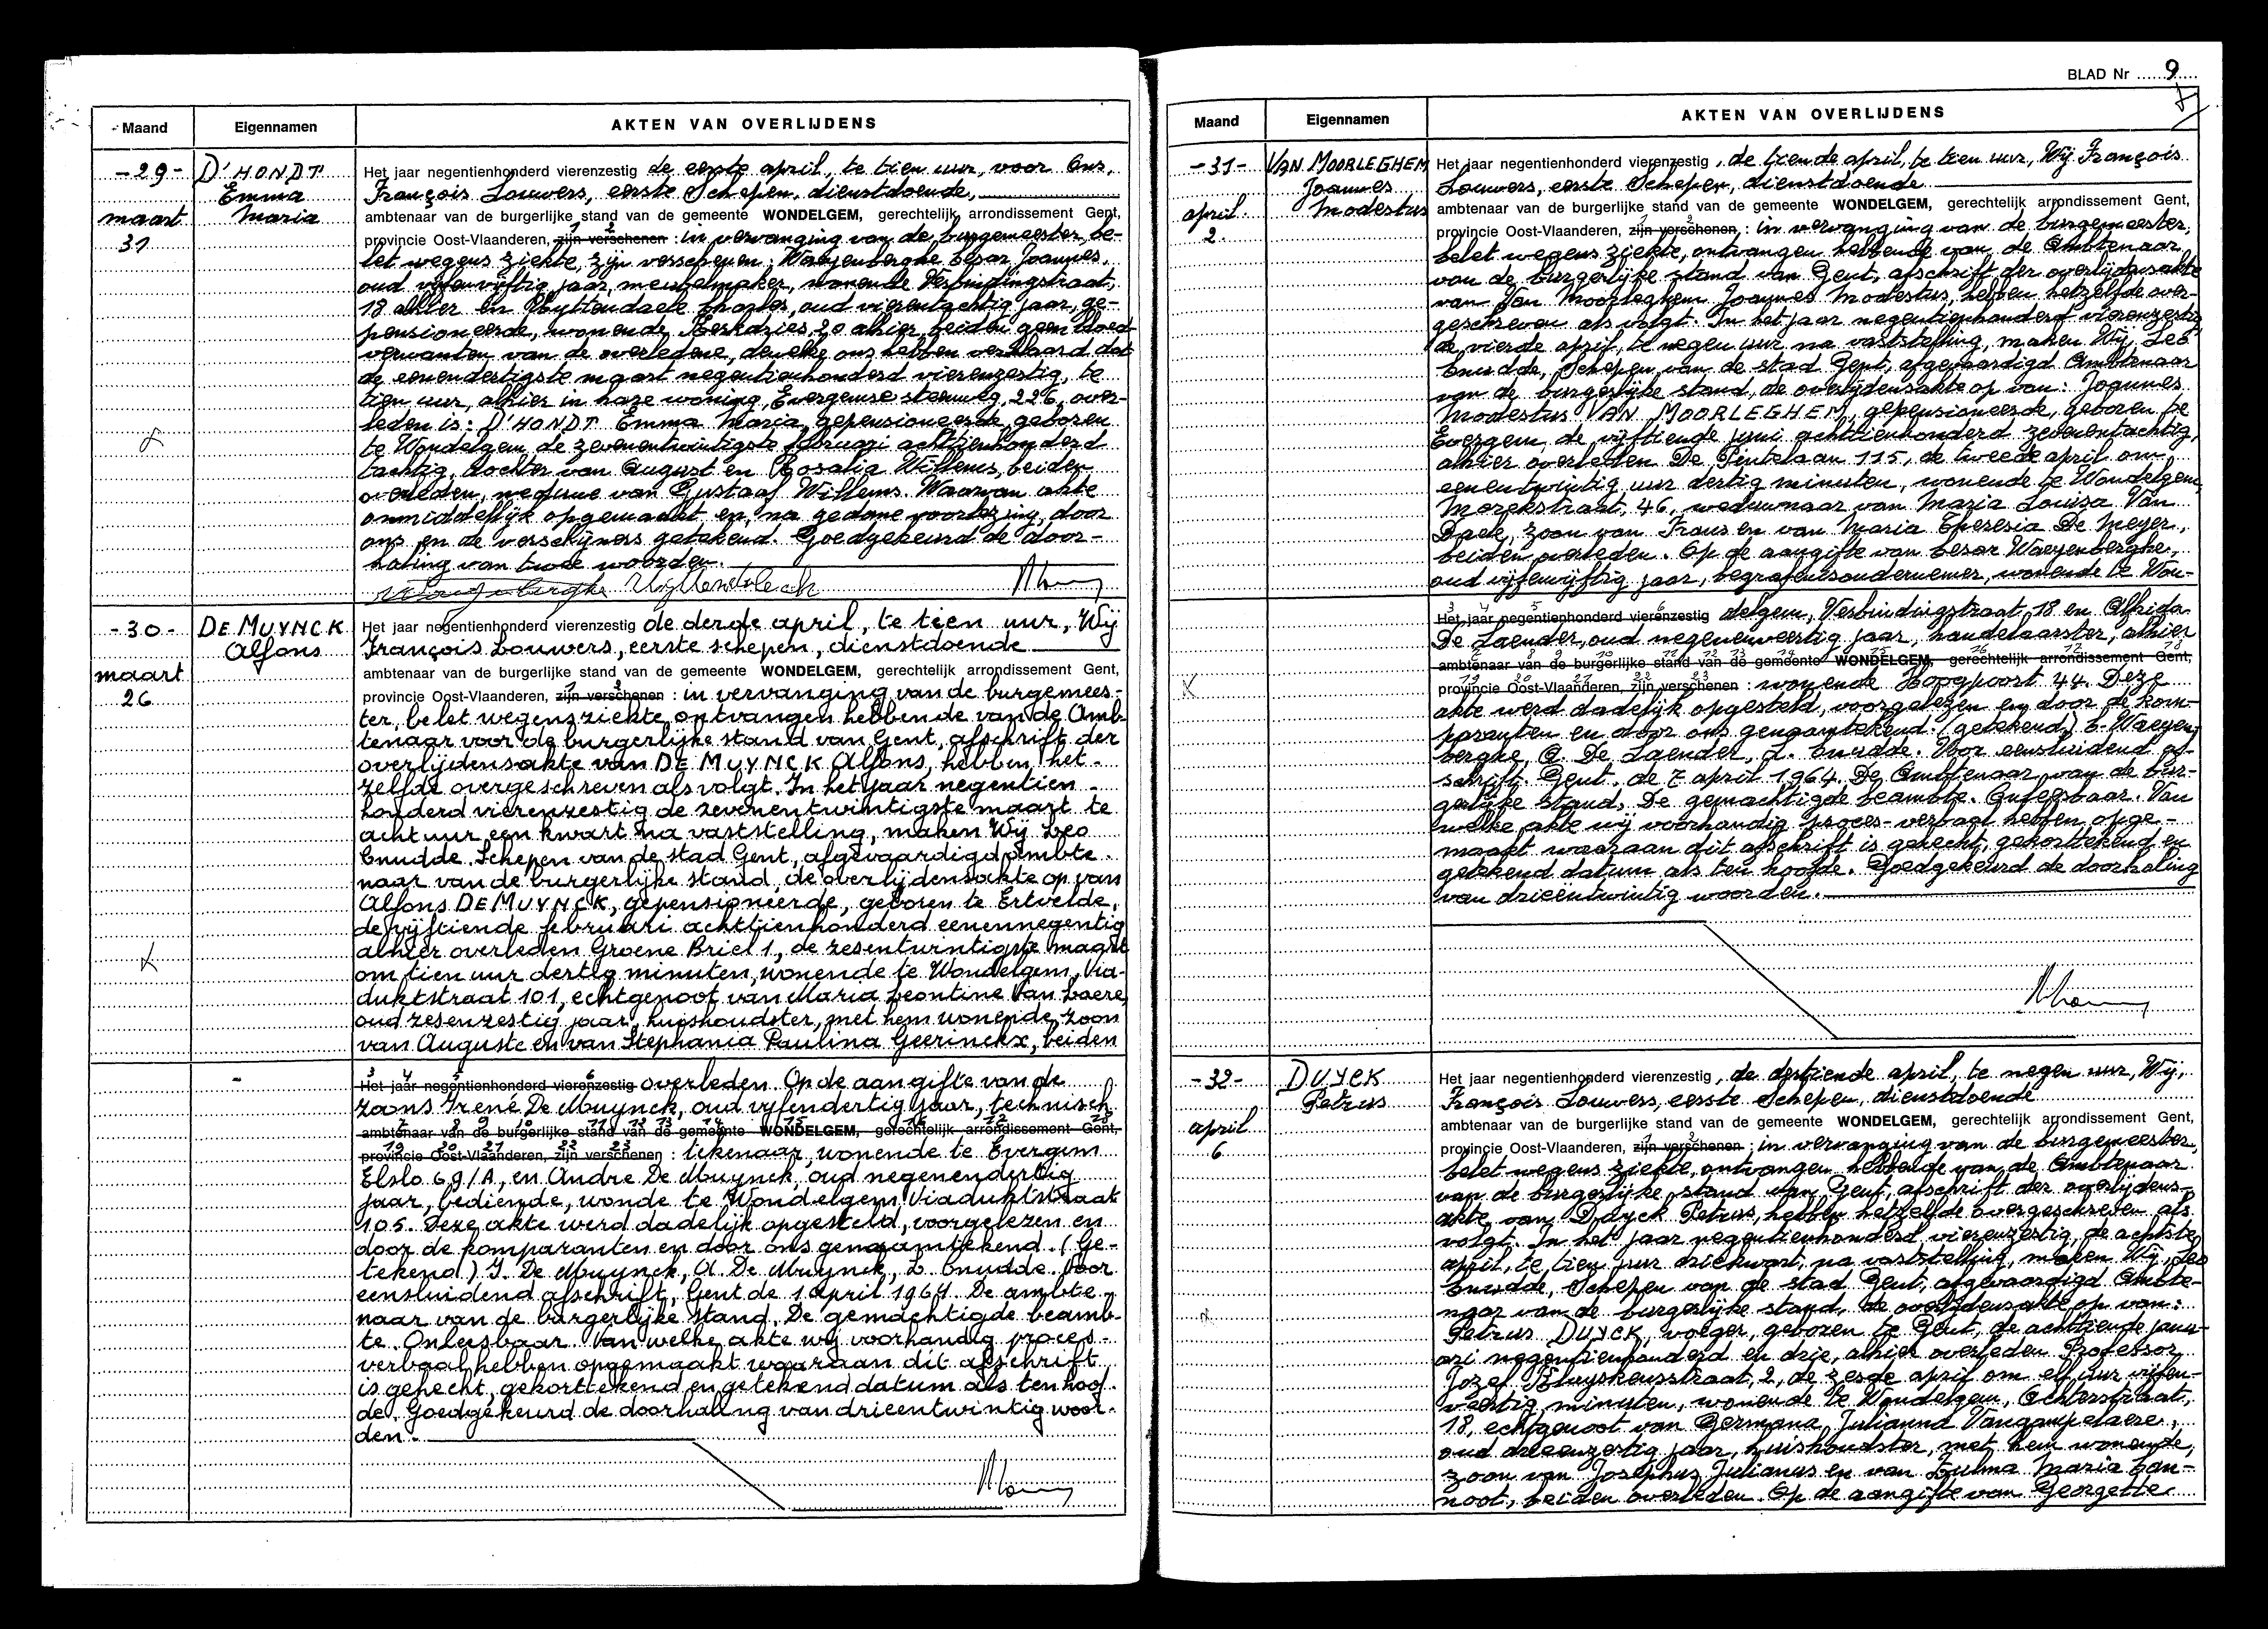 Maand Eigennamen AKTEN VAN OVERLIJDENS
-29- D'HONDT Emma Maria
maart 31
Het jaar negentienhonderd vierenzestig de eerste april, te tien uur, voor Ons,
François Louwers, eerste Schepen, dienstdoende,
ambtenaar van de burgerlijke stand van de gemeente WONDELGEM, gerechtelijk arrondissement Gent,
provincie Oost-Vlaanderen, zijn verschenen : in vervanging van de burgemeester, be-
let wegens ziekte, zijn verschenen: Waeyenberghe Cesar Joannes,
oud vijfenvijftig jaar, meubelmaker, wonende Verbindingstraat,
18 alhier en Uyttendaele Charles, oud vierentachtig jaar, ge-
pensioneerde, wonende 20 alhier, beiden geen bloed-
verwanten van de overledene, dewelke ons hebben verklaard dat
de eenendertigste maart negentienhonderd vierenzestig, te
tien uur, alhier in hare woning, Evergemse steenweg, 226, over-
leden is: D'HONDT Emma Maria, gepensioneerde, geboren
te Wondelgem, de zevenentwintigste februari achttienhonderd
tachtig, dochter van August en Rosalia Willems, beiden
overleden, weduwe van Gustaaf Willems. Waarvan akte
onmiddellijk opgemaakt en, na gedane voorlezing, door
ons en de verschijners getekend. Goedgekeurd de door-
haling van twee woorden.
-30- DE MUYNCK Alfons
maart 26
Het jaar negentienhonderd vierenzestig de derde april, te tien uur, Wij
François Louwers, eerste schepen, dienstdoende
ambtenaar van de burgerlijke stand van de gemeente WONDELGEM, gerechtelijk arrondissement Gent,
provincie Oost-Vlaanderen, zijn verschenen : in vervanging van de burgemees-
ter, belet wegens ziekte, ontvangen hebbende van de Amb-
tenaar voor de burgerlijke stand van Gent, afschrift der
overlijdensakte van DE MUYNCK Alfons, hebben het-
zelfde overgeschreven als volgt. In het jaar negentien-
honderd vierenzestig de zevenentwintigste maart te
acht uur een kwart na vaststelling, maken Wij Leo
Cnudde Schepen van de stad Gent, afgevaardigd ambte-
naar van de burgerlijke stand, de overlijdensakte op van
Alfons DE MUYNCK, gepensioneerde, geboren te Ertvelde,
de vijftiende februari achttienhonderd eenennegentig
alhier overleden Groene Briel 1, de zesentwintigste maart
om tien uur dertig minuten, wonende te Wondelgem, Via-
duktstraat 101, echtgenoot van Maria Leontine Van Laere,
oud zesenzestig jaar, huishoudster, met hem wonende, zoon
van Auguste en van Stephania Paulina Geerinckx, beiden
3 4 5 6
Het jaar negentienhonderd vierenzestig overleden. Op de aangifte van de
zoons Irené De Muynck, oud vijfendertig jaar, technisch
ambtenaar van de burgerlijke stand van de gemeente WONDELGEM, gerechtelijk arrondissement Gent,
provincie Oost-Vlaanderen, zijn verschenen : tekenaar, wonende te Evergem
Elslo 69/A, en Andre De Muynck, oud negenendertig
jaar, bediende, wonde te Wondelgem, Viaduktstraat
105. Deze akte werd dadelijk opgesteld, voorgelezen en
door de komparanten en door ons genaamtekend. (Ge-
tekend) I. De Muynck, A. De Muynck, L. Cnudde. Voor
eensluidend afschrift, Gent de 1 april 1964. De ambte-
naar van de burgerlijke stand. De gemachtigde beamb-
te. Onleesbaar. Van welke akte wij voorhandig proces-
verbaal hebben opgemaakt waaraan dit afschrift
is gehecht, gekorttekend en getekend datum als ten hoof-
de. Goedgekeurd de doorhaling van drieentwintig woor-
den.
BLAD Nr 9
Maand Eigennamen AKTEN VAN OVERLIJDENS
-31- VAN MOORLEGHEM Joannes Modestus
april 2.
Het jaar negentienhonderd vierenzestig, de tiende april, te tien uur, Wij François
Louwers, eerste Schepen, dienstdoende
ambtenaar van de burgerlijke stand van de gemeente WONDELGEM, gerechtelijk arrondissement Gent,
provincie Oost-Vlaanderen, zijn verschenen, : in vervanging van de burgemeester,
belet wegens ziekte, ontvangen hebbende van de Ambtenaar
van de burgerlijke stand van Gent, afschrift der overlijdensakte
van Van Moorleghem Joannes Modestus, hebben hetzelfde over-
geschreven als volgt. In het jaar negentienhonderd vierenzestig
de vierde april, te negen uur na vaststelling, maken Wij, Leo
Cnudde, Schepen van de stad Gent, afgevaardigd Ambtenaar
van de burgerlijke stand, de overlijdensakte op van: Joannes
Modestus VAN MOORLEGHEM, gepensioneerde, geboren te
Evergem de vijftiende juni achttienhonderd zevenentachtig,
alhier overleden De Pintelaan 115, de tweede april om
eenentwintig uur dertig minuten, wonende te Wondelgem,
Morekstraat, 46, weduwnaar van Maria Louisa Van
Daele, zoon van Frans en van Maria Theresia De Meyer,
beiden overleden. Op de aangifte van Cesar Waeyenberghe,
oud vijfenvijftig jaar, begrafenisondernemer, wonende te Won-
3 4 5 6
Het jaar negentienhonderd vierenzestig delgem, Verbindingstraat, 18 en Alfrida
De Laender, oud negenenveertig jaar, handelaarster, alhier
ambtenaar van de burgerlijke stand van de gemeente WONDELGEM, gerechtelijk arrondissement Gent,
provincie Oost-Vlaanderen, zijn verschenen : wonende Hoogpoort 44. Deze
akte werd dadelijk opgesteld, voorgelezen en door de kom-
paranten en door ons genaamtekend. (getekend) C. Waeyen-
berghe, A. De Laender, L. Cnudde. Voor eensluidend af-
schrift. Gent. de 7 april 1964. De Ambtenaar van de bur-
gerlijke stand, De gemachtigde beambte. Onleesbaar. Van
welke akte wij voorhandig proces-verbaal hebben opge-
maakt waaraan dit afschrift is gehecht, gekorttekend en
getekend datum als ten hoofde. Goedgekeurd de doorhaling
van drieentwintig woorden.
-32- DUYCK Petrus
april 6
Het jaar negentienhonderd vierenzestig, de dertiende april, te negen uur, Wij,
François Louwers, eerste Schepen, dienstdoende
ambtenaar van de burgerlijke stand van de gemeente WONDELGEM, gerechtelijk arrondissement Gent,
provincie Oost-Vlaanderen, zijn verschenen : in vervanging van de burgemeester,
belet wegens ziekte, ontvangen hebbende van de Ambtenaar
van de burgerlijke stand van Gent, afschrift der overlijdens-
akte van Duyck Petrus, hebben hetzelfde overgeschreven als
volgt. In het jaar negentienhonderd vierenzestig, de achtste
april, te tien uur driekwart, na vaststelling, maken Wij, Leo
Cnudde, Schepen van de stad Gent, afgevaardigd Ambte-
naar van de burgerlijke stand, de overlijdensakte op van:
Petrus DUYCK, voeger, geboren te Gent, de achttiende janu-
ari negentienhonderd en drie, alhier overleden Professor
Jozef Kluyskensstraat, 2, de zesde april om elf uur vijfen-
veertig minuten, wonende te Wondelgem, Achterstraat,
18, echtgenoot van Germana Julianna Vangampelaere,
oud drieenzestig jaar, huishoudster, met hem wonende,
zoon van Josephus Julianus en van Zulma Maria Can-
noot, beiden overleden. Op de aangifte van Georgette